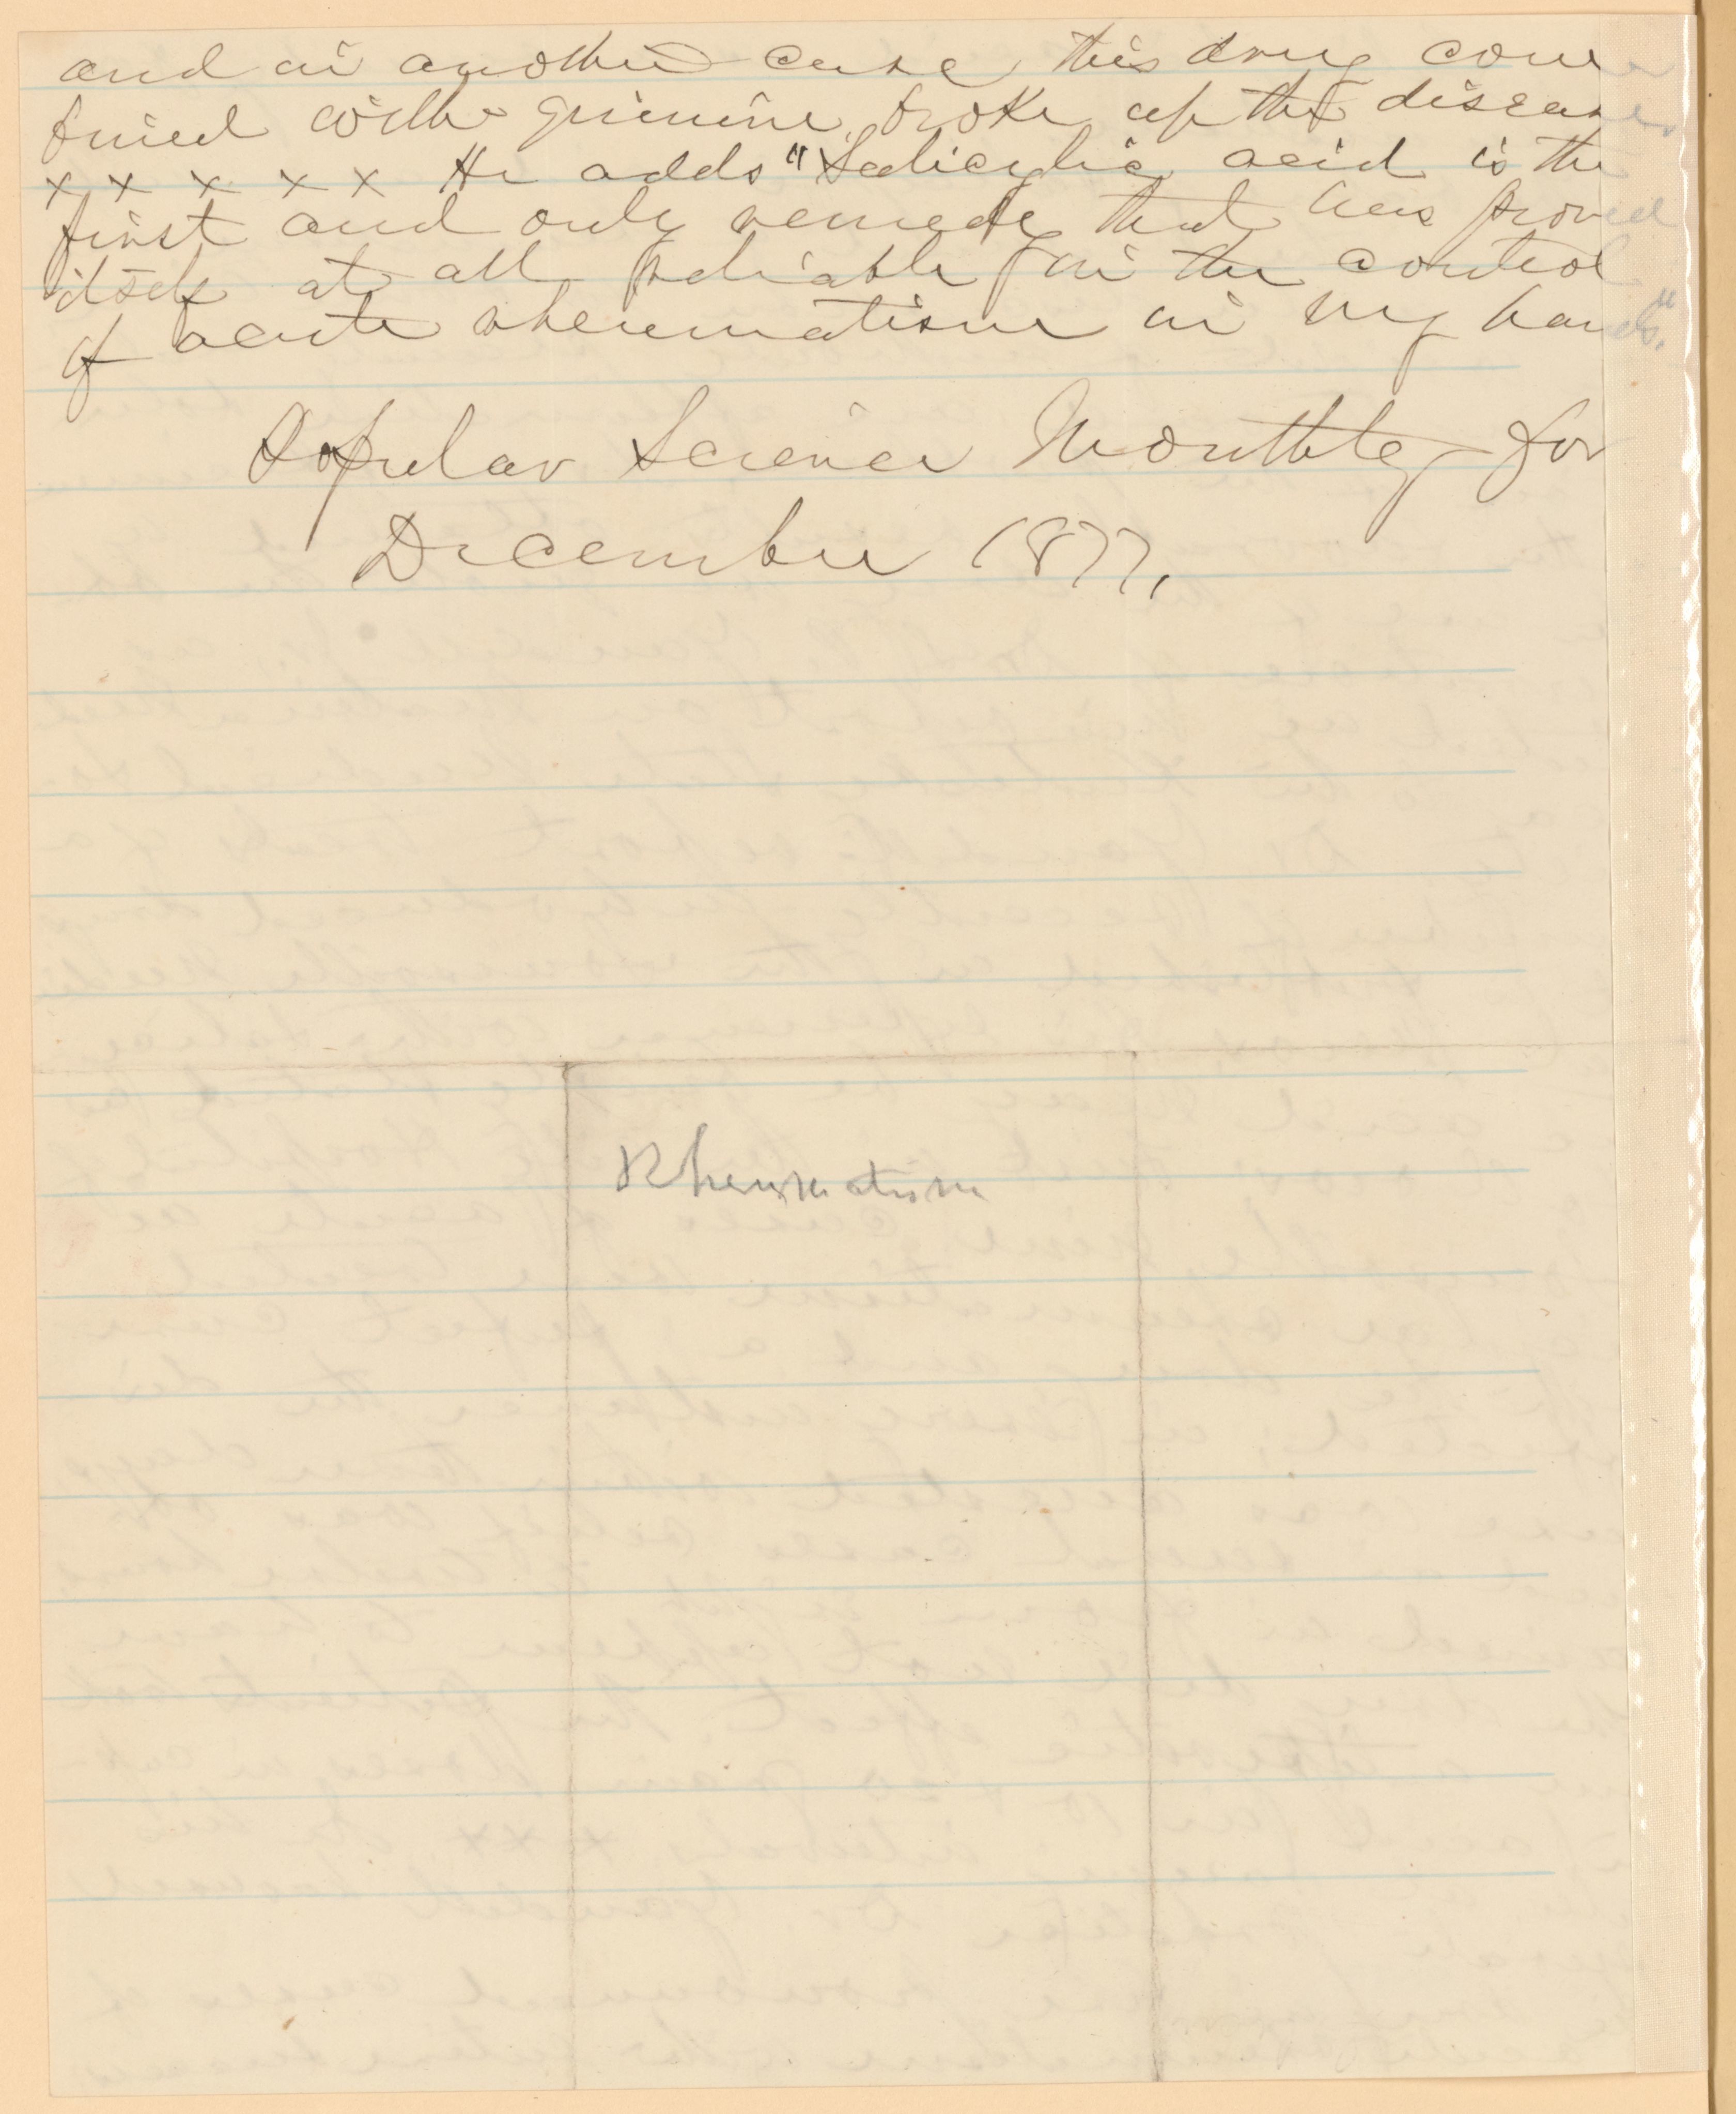 and in another case this drug com
bined with quinine broke up the disease
x x x x x He adds "Salicylic acid is the
first and only remedy that has proved
itself at all reliable in the control
of acute rheumatism in my hands."
Popular Science Monthly for
December 1877.
Rheumatism